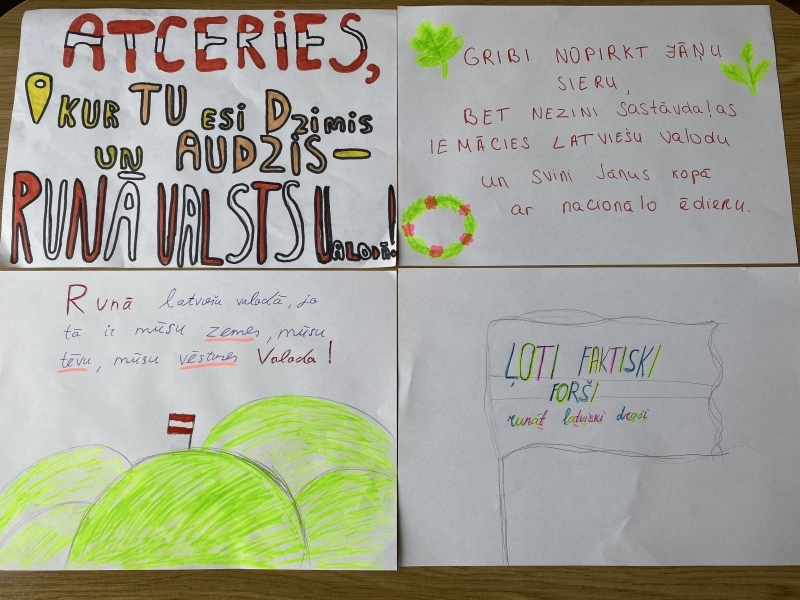 ATCERIES,
KUR TU esi Dzimis
UN AUDZIS—
RUNĀ VALSTS VALODĀ!
GRIBI NOPIRKT JĀŅU
SIERU,
BET NEZINI Sastāvdaļas
IEMĀCIES LATVIEŠU Valodu
un svini Jāņus kopā
ar nacionālo ēdienu.
Runā latviešu valodā, jo
tā ir mūsu zemes, mūsu
tēvu, mūsu vēstures Valoda!
ĻOTI FAKTISKI
FORŠI
runāt latviski droši